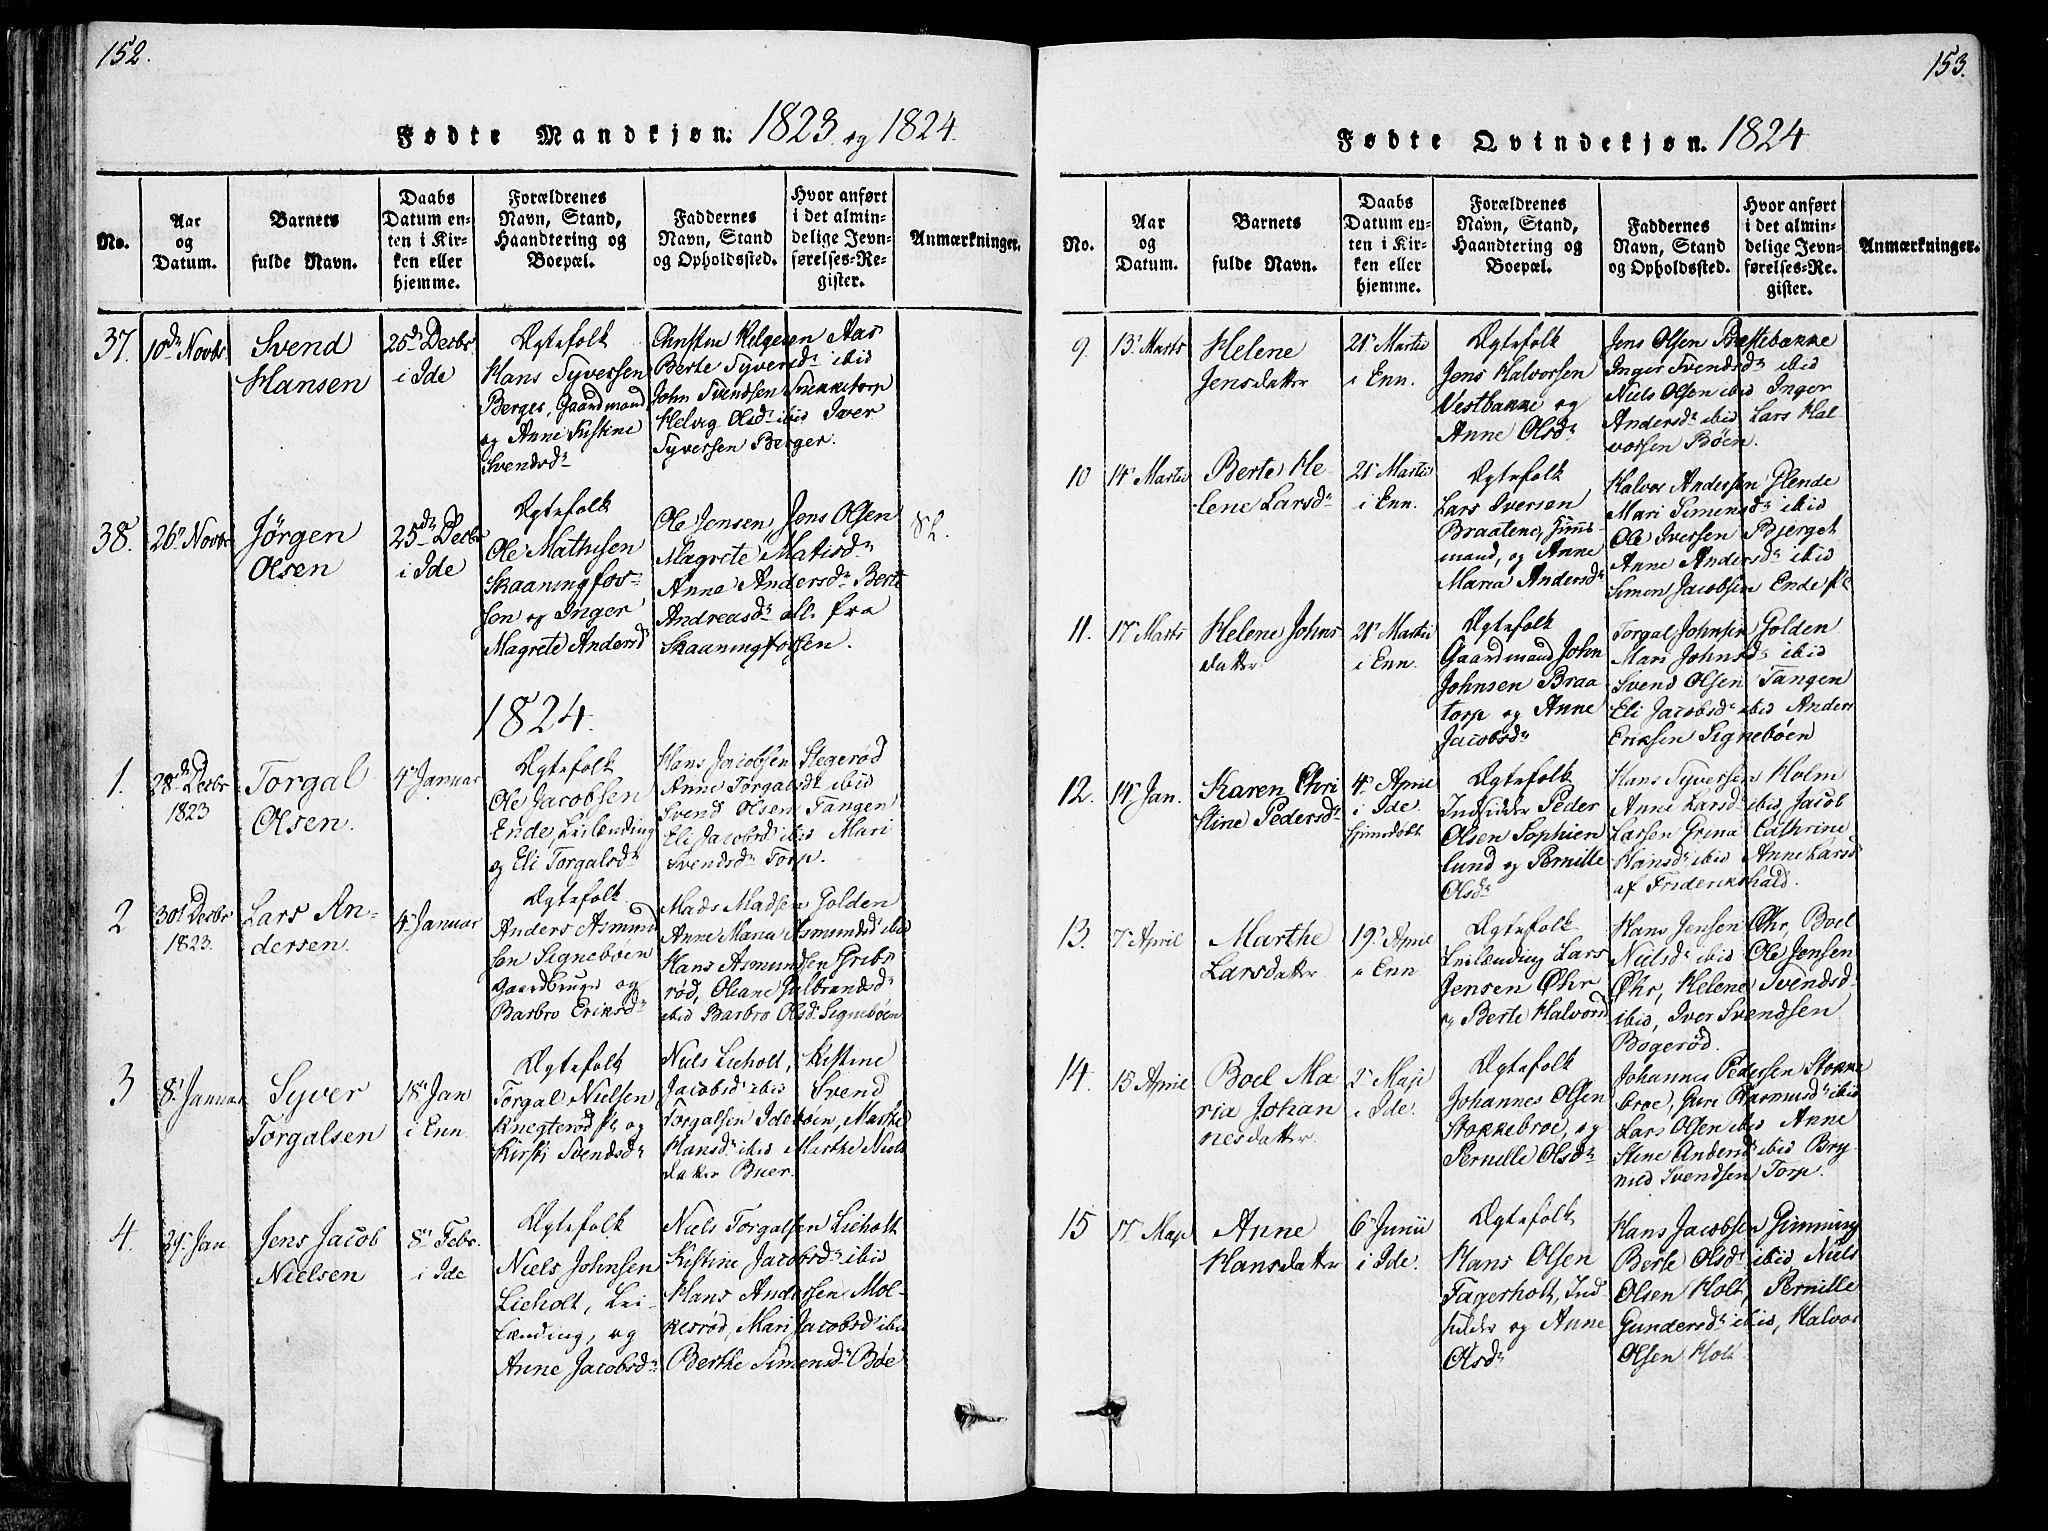 152.
Fødte Mandkjøn. 1823. og 1824.
No.
Aar
og
Datum.
Barnets
fulde Navn.
Daabs
Datum en-
ten i Kir-
ken eller
hjemme.
Forældrenes
Navn, Stand,
Haandtering og
Boepæl.
Faddernes
Navn, Stand
og Opholdssted.
Hvor anført
i det almin-
delige Jevn-
førelses-Re-
gister.
Anmærkninger.
37.
10de Novbr
Svend
Hansen
25d Decbr
i Ide
Ægtefolk
Hans Syversen
Berger, Gaardmand
og Anne Kistine
Svendsdr
Christen Helgesen Aas
Berte Syversdr ibid
John Svendsen Snekketorp
Helvig Olsdr ibid Iver
Syversen Berger.
38.
26r Novbr
Jørgen
Olsen
25de Decbr
i Ide
Ægtefolk
Ole Mathisen
Skaaningfos-
sen og Inger
Magrete Andersd
Ole Jensen, Jens Olsen
Magrete Matisdr
Anne Andersdr Berte
Andreasdr all. fra
Skaaningfossen.
1824.
1.
28de Decbr
1823
Torgal
Olsen.
4r Januar
Ægtefolk
Ole Jacobsen
Ende Leilending
og Eli Torgalsdr
Hans Jacobsen Stegerød
Anne Torgalsdr ibid
Svend Olsen Tangen
Eli Jacobsdr ibid Mari
Svendsdr Torp.
2
30t Decbr
1823.
Lars An-
dersen.
4r Januar
Ægtefolk
Anders Asmund
sen Signebøen
Gaardbruger og
Barbro Eriksdr
Mads Madsen Golden
Anne Maria Asmundsdr ibid
Hans Asmundsen Gribs
rød, Oliane Gulbrandsdr
ibid Barbro Olsdr Signebøen
3
8r Januar
Syver
Torgalsen
18r Jan
i Enn.
Ægtefolk
Torgal Nielsen
Knegterød Pl. og
Kirsti Svendsdr
Niels Lieholt, Kistine
Jacobsdr ibid Svend
Torgalsen Idebøen, Marthe
Hansdr ibid Marthe Niels
datter Buer.
4.
Jan
Jens Jacob
Nielsen
8r Febr.
i Ide
Ægtefolk
Niels Johnsen
Lieholt, Lei-
lænding, og
Anne Jacobsdr
Niels Torgalsen Lieholt
Kistine Jacobsdr ibid
Hans Andersen Mol-
kerød, Mari Jacobsdr ibid
Berthe Simensdr Bøe
153.
Fødte Qvindekjøn. 1824
No.
Aar
og
Datum.
Barnets
fulde Navn.
Daabs
Datum en-
ten i Kir-
ken eller
hjemme.
Forældrenes
Navn, Stand,
Haandtering og
Boepæl.
Faddernes
Navn, Stand
og Opholdssted.
Hvor anført
i det almin-
delige Jevn-
førelses-Re-
gister.
Anmærkninger.
9.
13r Marts
Helene
Jensdatter
21r Martii
i Enn.
Ægtefolk
Jens Halvorsen
Vestbakke og
Anne Olsdr
Jens Olsen Præstebakke
Inger Svendsdr ibid
Niels Olsen ibid Inger
Andersdr ibid Lars Hal
vorsen Bøen.
10
14r Martii
Berte He-
lene Larsdr
21r Martii
i Enn.
Ægtefolk
Lars Iversen
Braatene,
mand, og Anne
Maria Andersdr
Halvor Andersen Glende
Mari Simensdr ibid
Ole Iversen Bjerget
Anne Andersdr ibid
Simon Jacobsen Ende Pl.
11.
17r Marts
Helene Johns
datter
21r Martii
i Enn.
Ægtefolk
Gaardmand John
Johnsen Braa
torp og Anne
Jacobsdr
Torgal Johnsen Golden
Mari Johnsdr ibid
Svend Olsen Tangen
Eli Jacobsdr ibid Anders
Eriksen Signebøen
12.
14r Jan.
Karen Chri
stine Pedersdr
4r April
i Ide
hjemdøbt
Ægtefolk
Indsidder Peder
Olsen Sophien
lund og Pernille
Olsdr
Hans Syversen Holm
Anne Larsdr ibid Jacob
Larsen Grina Cathrine
Hansdr ibid Anne Larsdr
af Friderikshald.
13.
7r April
Marthe
Larsdatter
19r April
i Enn
Ægtefolk
Leilending Lars
Jensen Øhr
og Berte Halvorsd
Hans Jensen Øhr, Boel
Nielsdr ibid Ole Jensen
Øhr, Helene Svendsd
ibid, Iver Svendsen
Bogerød.
14.
15 April
Boel Ma
ria Johan
nesdatter
2r Maji
i Ide.
Ægtefolk
Johannes Olsen
Stokkebroe, og
Pernille Olsdr
Johannes Pedersen Stokke
broe, Guri Rasmusdr ibid
Lars Olsen ibid Anne
Stine Andersd ibid Bry-
nild Svendsen Torp.
15
17r Maji
Anne
Hansdatter
6r Junii
i Ide.
Ægtefolk
Hans Olsen
Fagerholt, Ind
sidder og Anne
Olsdr
Hans Jacobsen Gimming
Berte Olsdr ibid, Niels
Olsen Holt, Pernille
Gundersdr ibid, Halvor
Olsen Holt